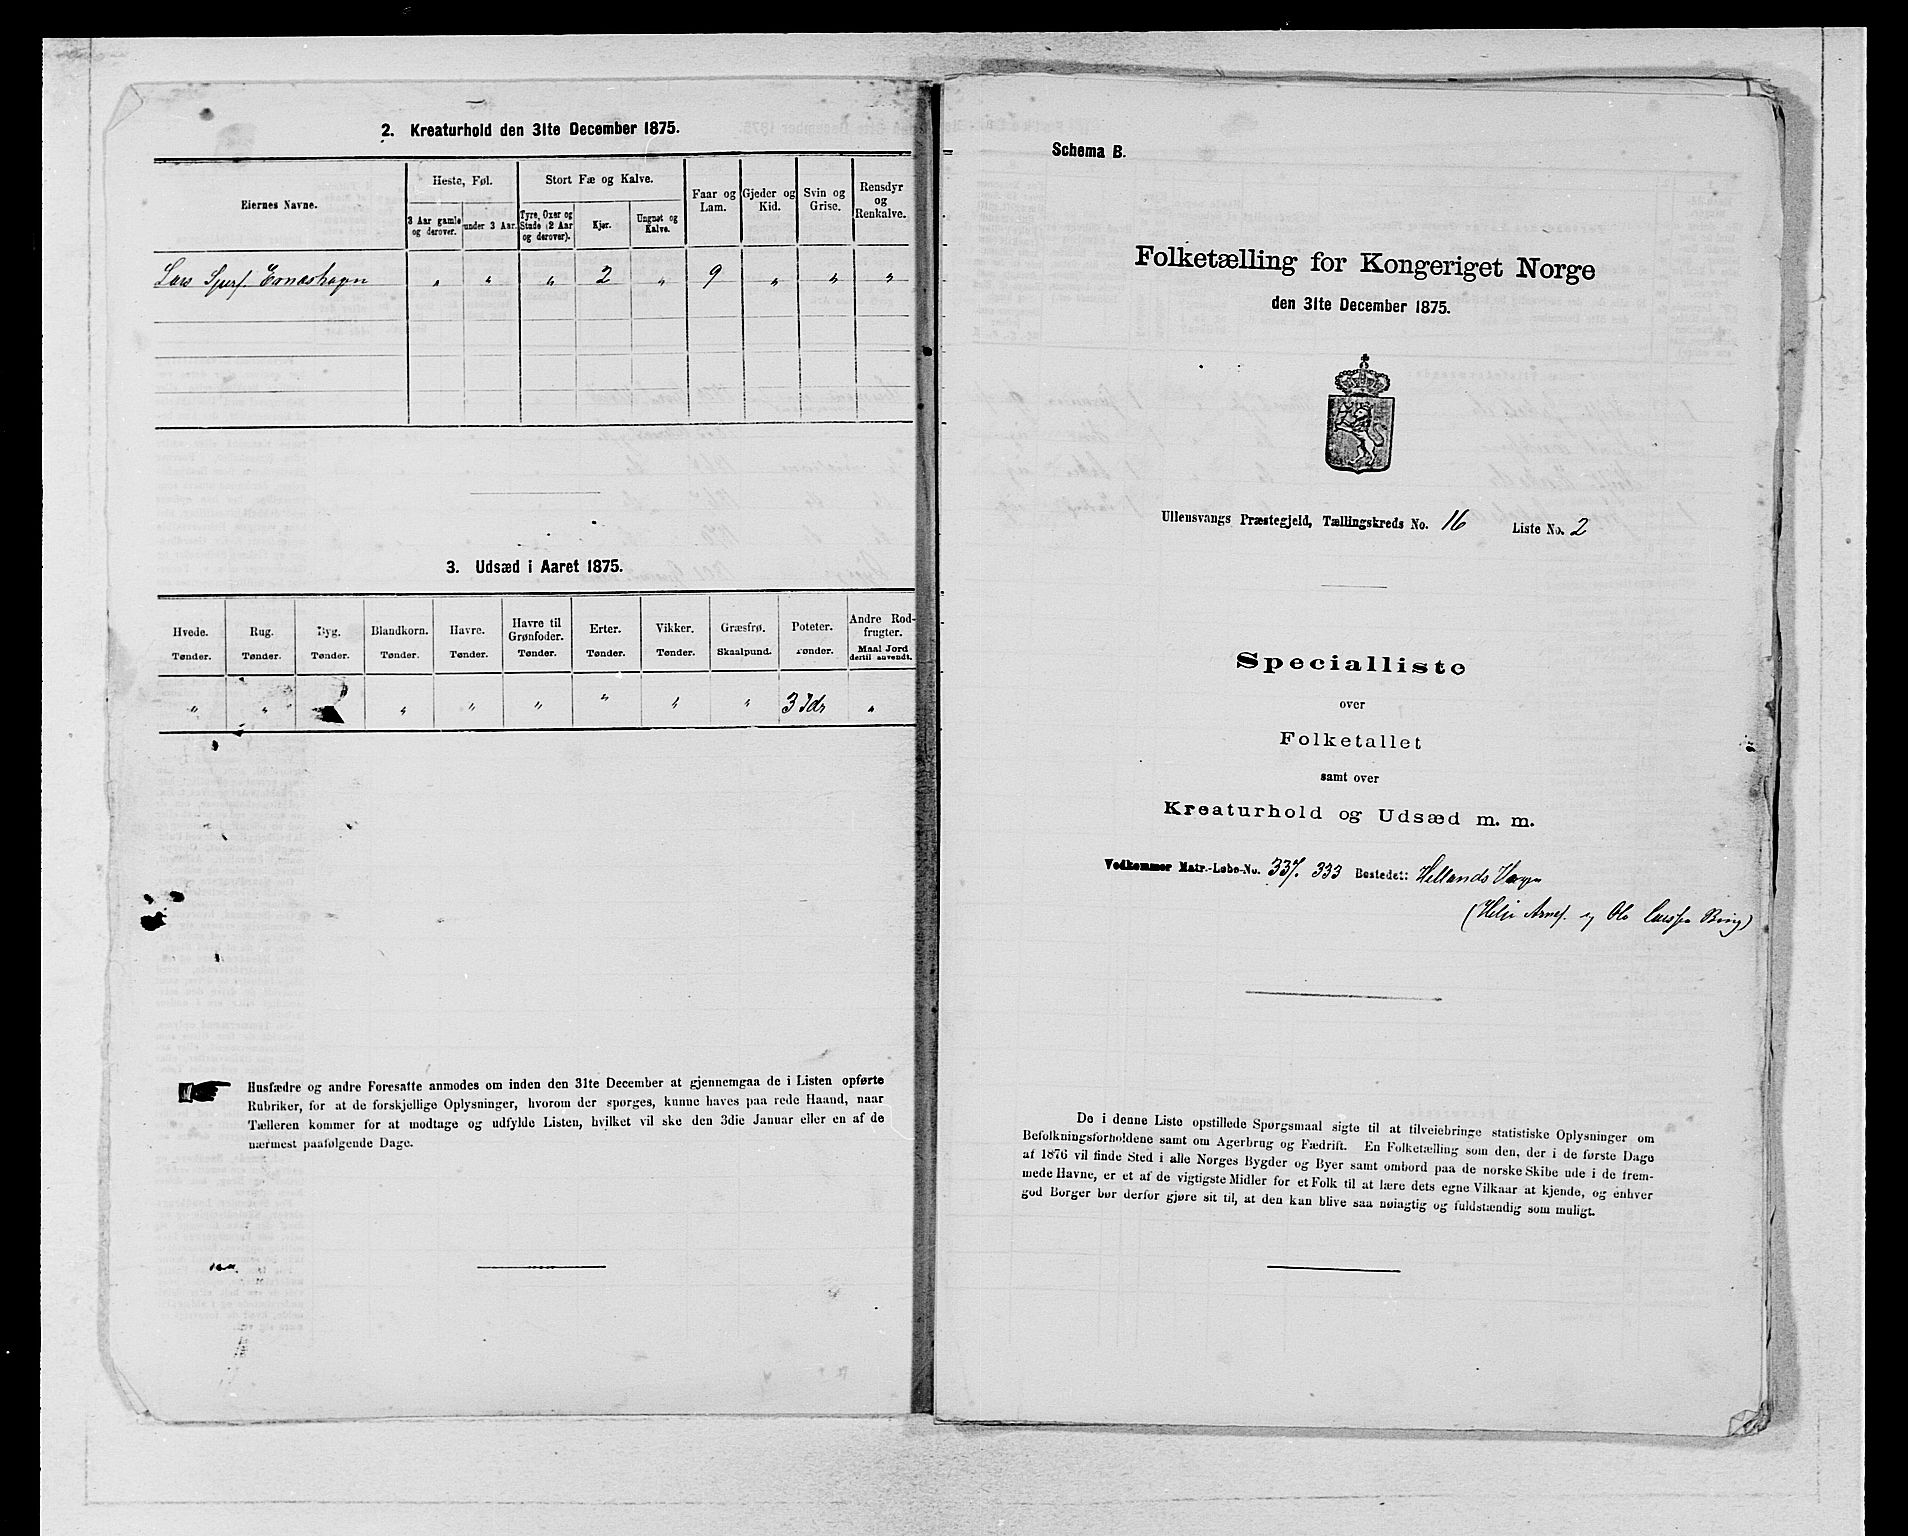 2. Kreaturhold den 31te December 1875.
Eiernes Navne.
Heste, Føl.
Stort Fæ og Kalve.
Faar og Lam.
Gjeder og Kid.
Svin og Grise.
Rensdyr og Renkalve.
3 Aar gamle og derover.
under 3 Aar.
Tyre, Oxer og Stude (2 Aar og derover).
Kjør.
Ungnøt og Kalve.
Lars " " " 2 " 9 " " "
3. Udsæd i Aaret 1875.
Hvede. Rug. Byg. Blandkorn. Havre. Havre til Grønfoder. Erter. Vikker. Græsfrø. Poteter. Andre Rodfrugter.
Tønder. Tønder. Tønder. Tønder. Tønder. Tønder. Tønder. Tønder. Skaalpund. Tønder. Maal Jord dertil anvendt.
" " " " " " " " 3 Tdr "
Husfædre og andre Foresatte anmodes om inden den 31te December at gjennemgaa de i Listen opførte
Rubriker, for at de forskjellige Oplysninger, hvorom der spørges, kunne haves paa rede Haand, naar
Tælleren kommer for at modtage og udfylde Listen, hvilket vil ske den 3die Januar eller en af de
nærmest paafølgende Dage.
Schema B.
Folketælling for Kongeriget Norge
den 31te December 1875.
Ullensvangs Præstegjeld, Tællingskreds No. 16 Liste No. 2
Specialliste
over
Folketallet
samt over
Kreaturhold og Udsæd m. m.
Vedkommer Matr.-Løbe-No. 337. 333 Bostedet: Hellands
(Helje Arnes. og Ole
De i denne Liste opstillede Spørgsmaal sigte til at tilveiebringe statistiske Oplysninger om
Befolkningsforholdene samt om Agerbrug og Fædrift. En Folketælling som den, der i de første Dage
af 1876 vil finde Sted i alle Norges Bygder og Byer samt ombord paa de norske Skibe ude i de frem-
mede Havne, er et af de vigtigste Midler for et Folk til at lære dets egne Vilkaar at kjende, og enhver
god Borger bør derfor gjøre sit til, at den kan blive saa nøiagtig og fuldstændig som muligt.